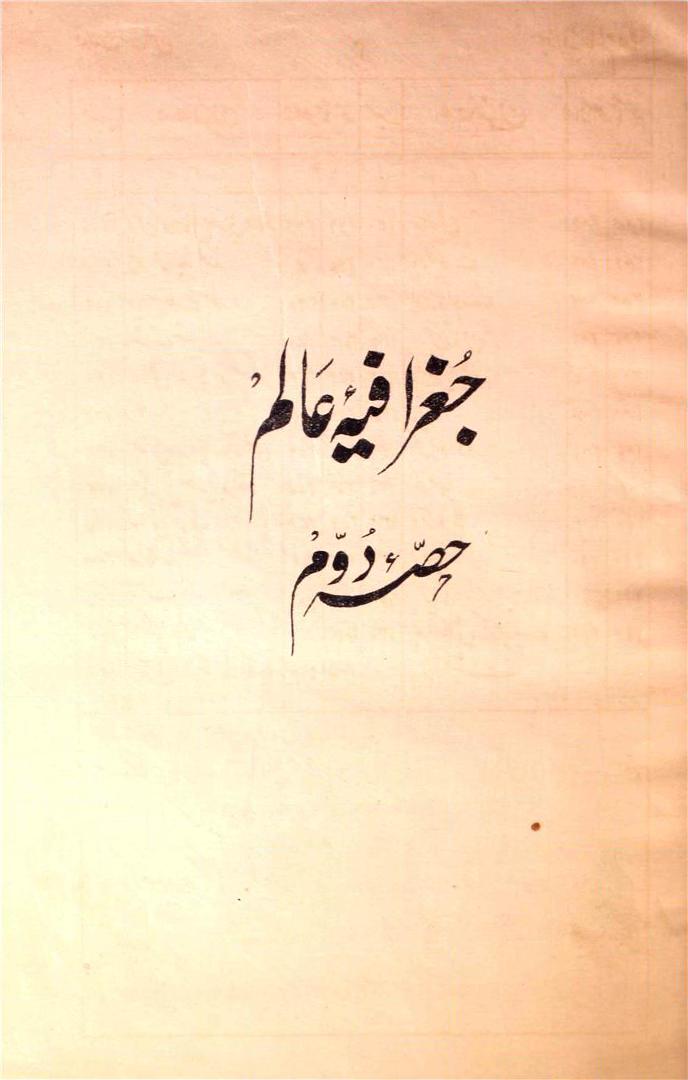 جُغرافیۂ عَالم
حصّہٴ دُوّم